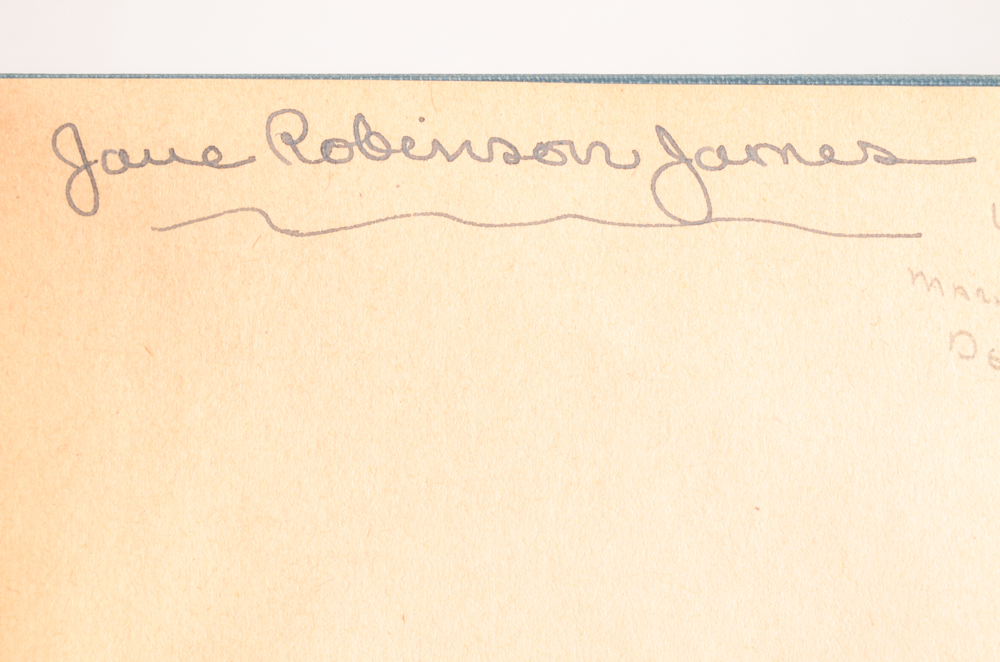 Jane Robinson James